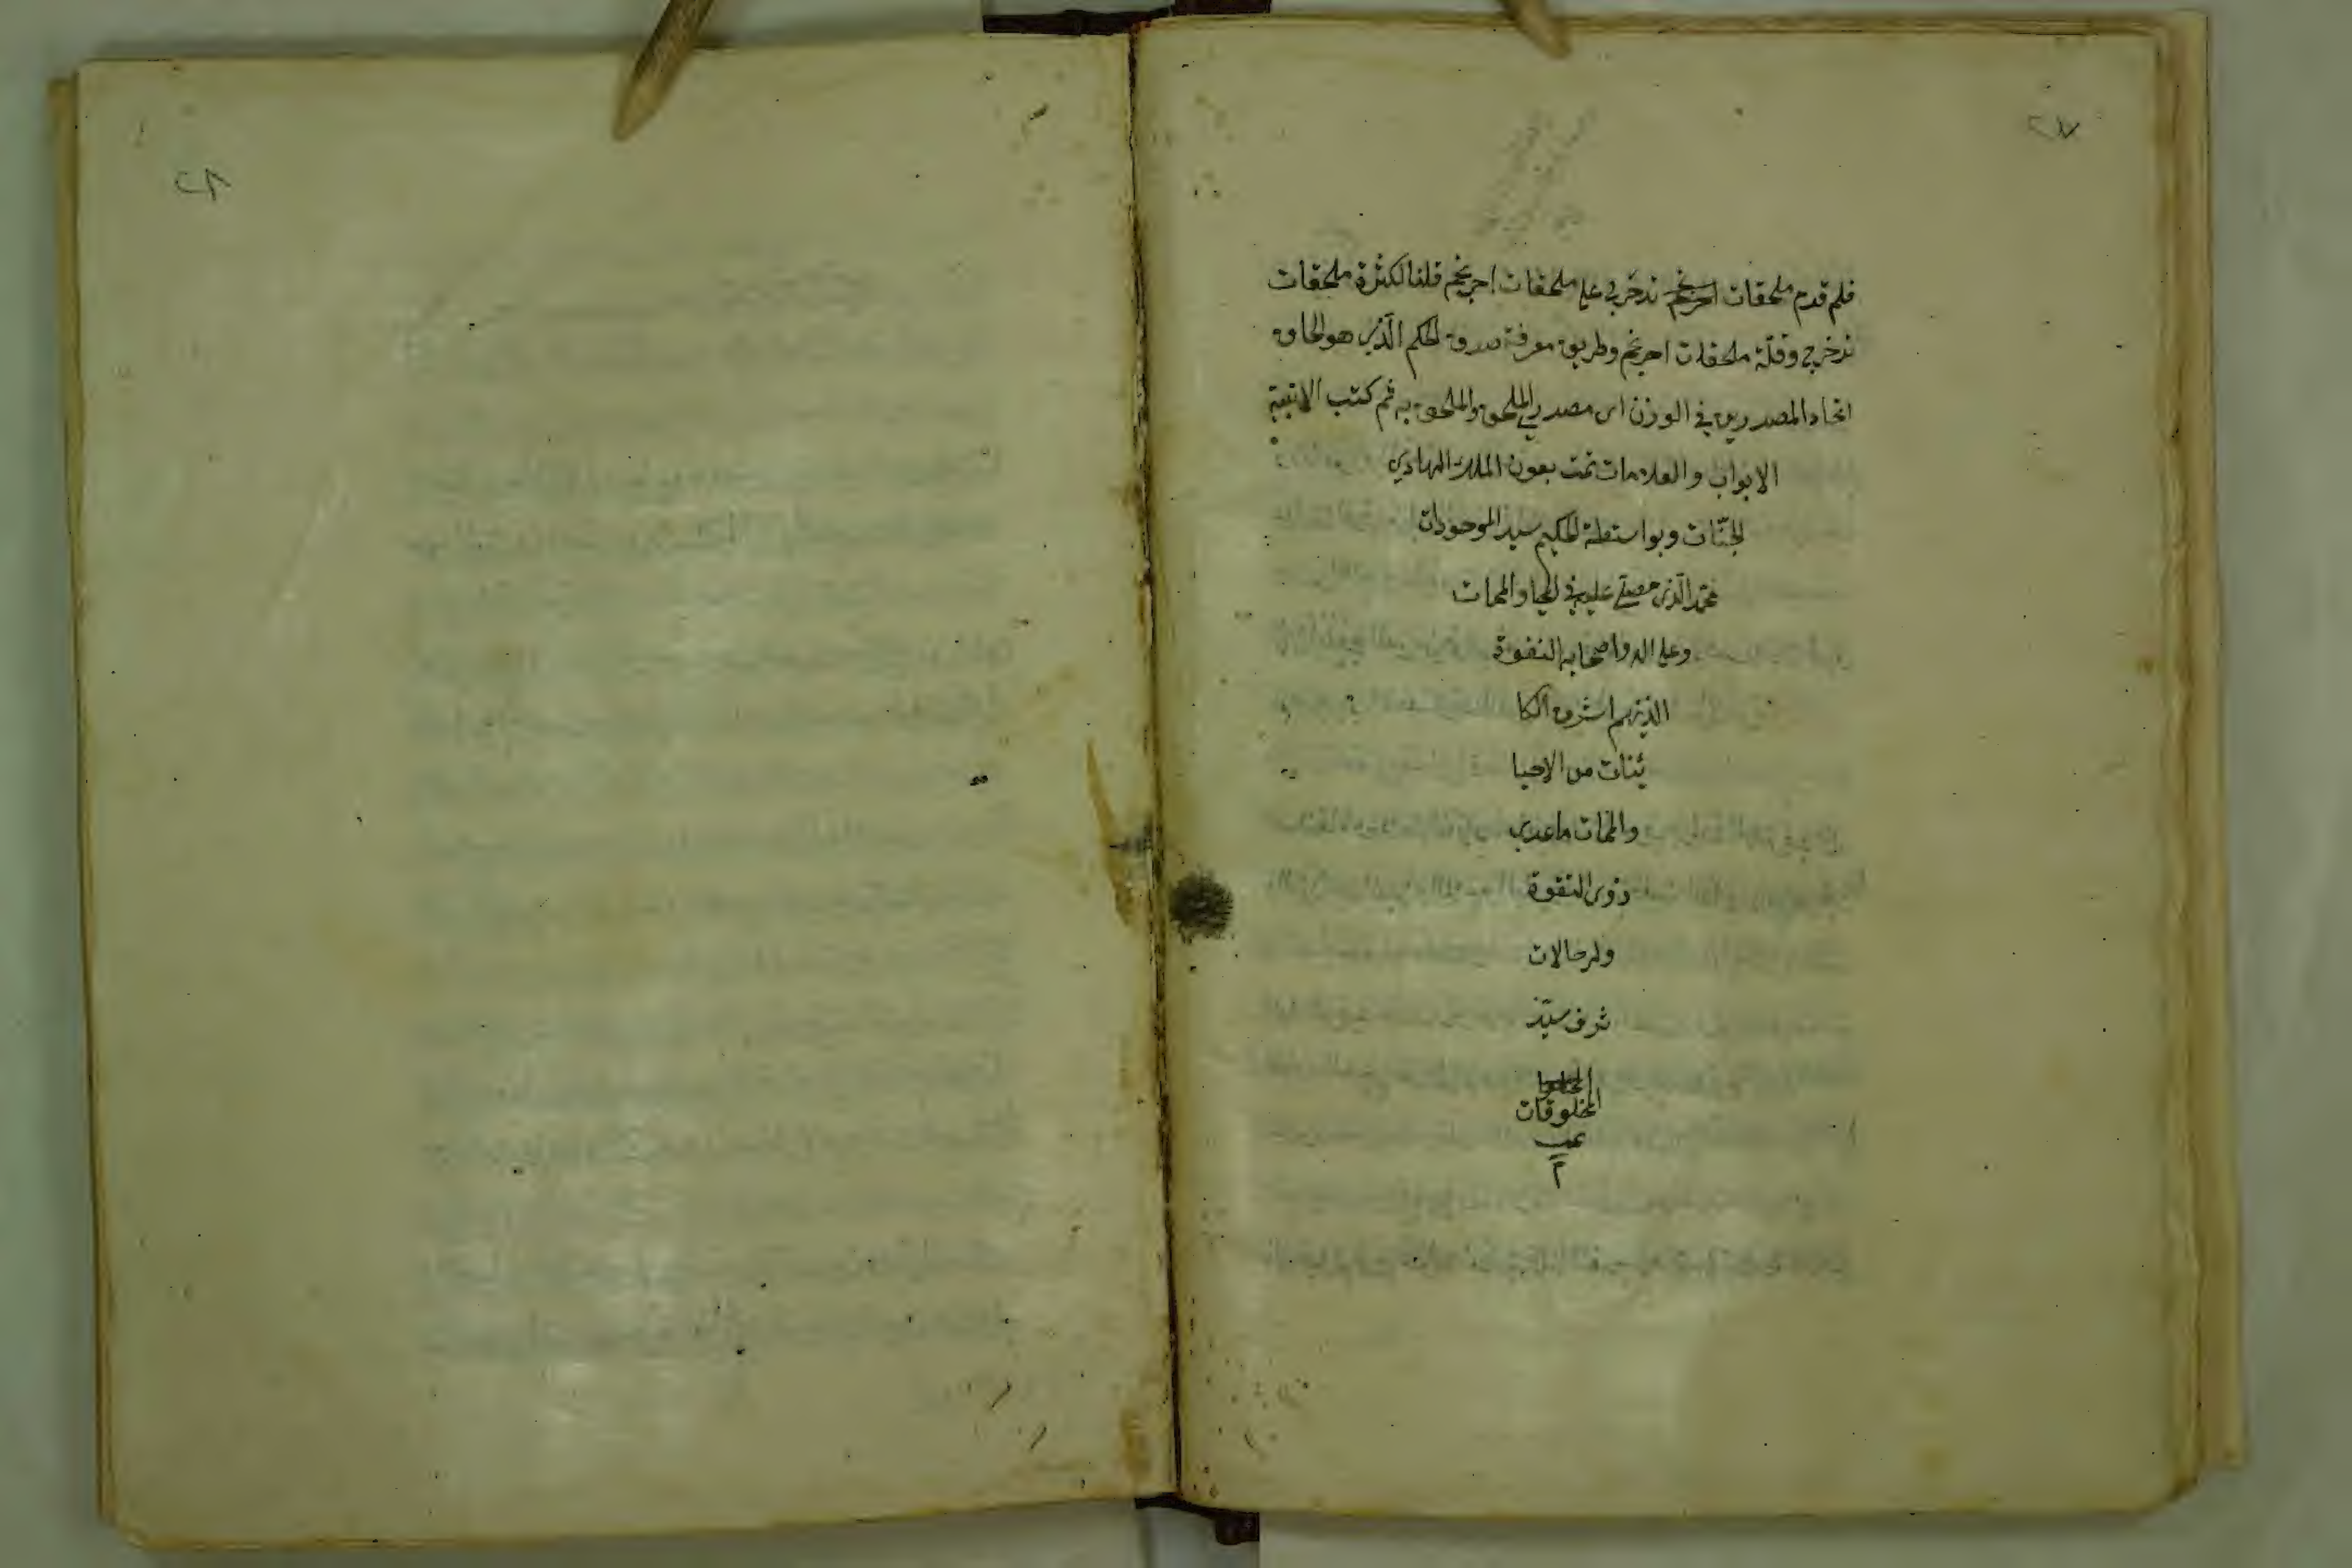 ٢٧
فلم قدم ملحقات تدحرج على ملحقات احرنجم قلنا لكثرة ملحقات
تدحرج وقلّة ملحقات احرنجم وطريق معرفة صدق الحكم الّذى هو الحاق
اتحاد المصدرين فى الوزن اى مصدر الملحق والملحق به ثم كتب
الابواب والعلامات تمت بعون الملك الهادي
الجنّات وبواسطة الحكيم سيد الموجودات
محمد الّذى عليه فى المحيا والممات
وعلى اله واصحابه التقوة
الذينهم اشرف الكا
ئنات من الاحيا
والممات ماعدى
ذوى التقوة
والرحالات
شرف سيّد
المخلوقات
م
٢٨